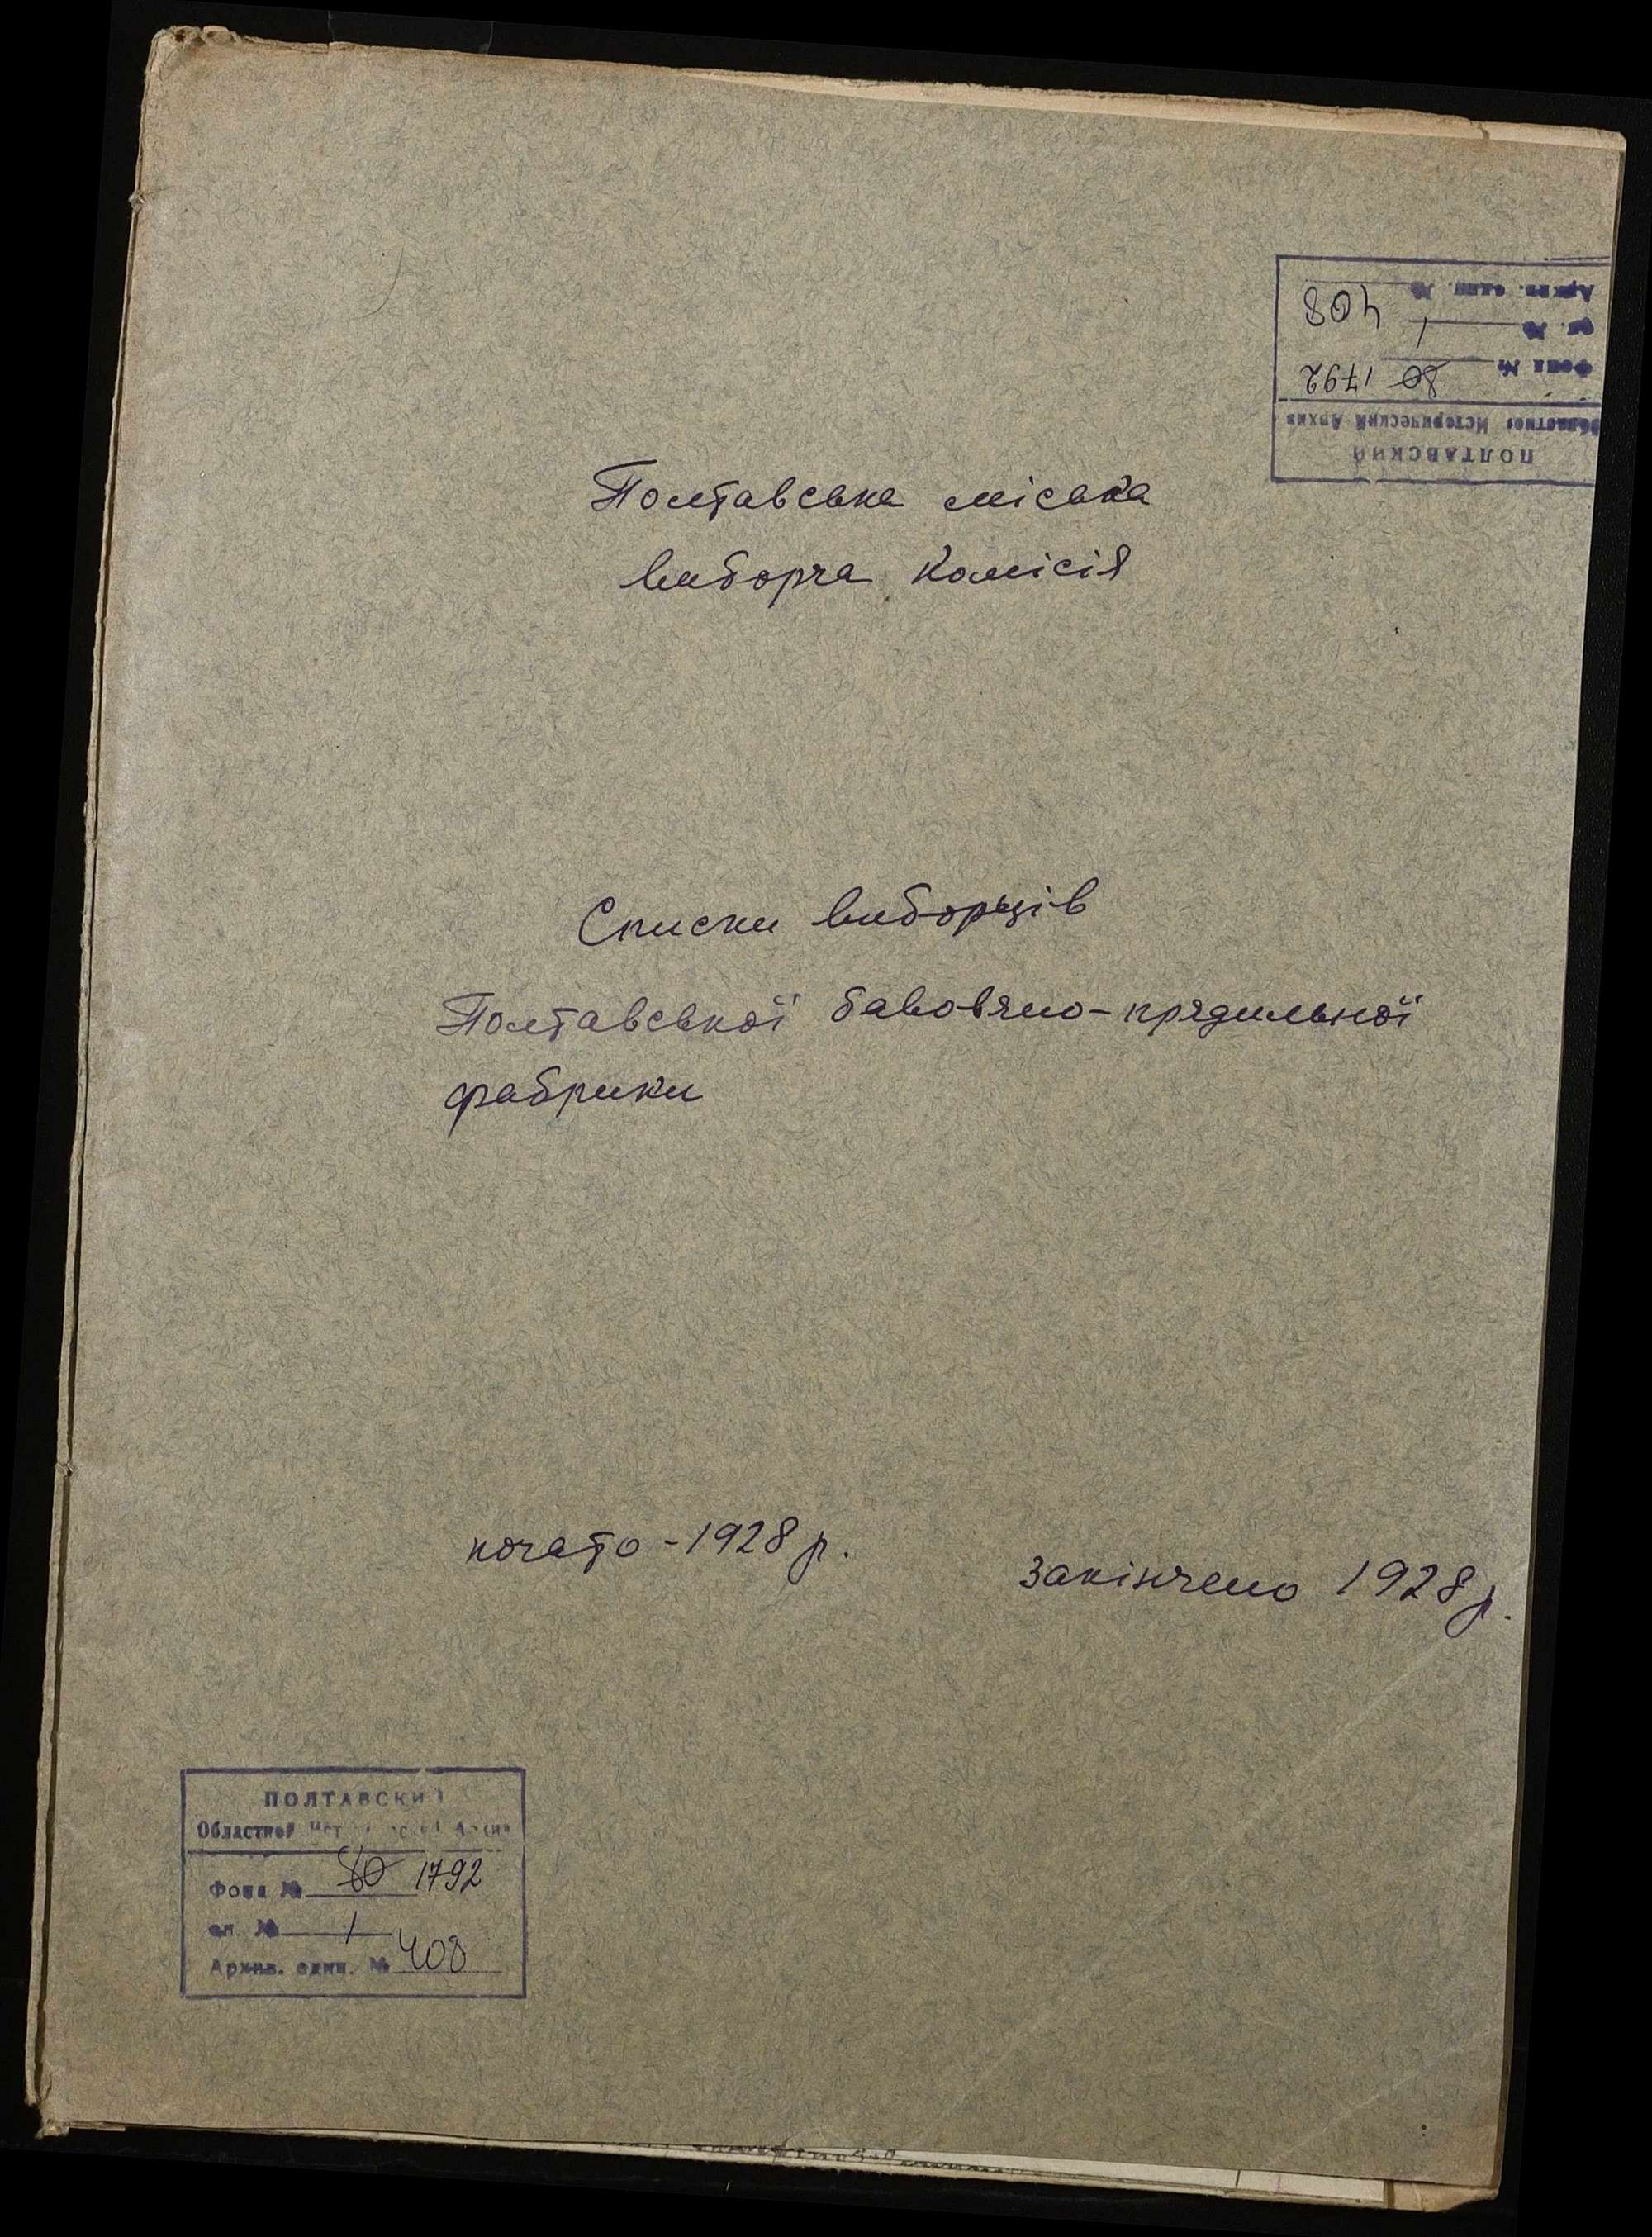 ПОЛТАВСКИЙ
Областной Исторический Архив
Фонд № 80 1792
оп. № 1
Архив. един. № 408
Полтавська міська
виборча комісія
Списки виборців
Полтавської бавовяно-прядильної
фабрики
почато - 1928 р.
закінчено 1928 р.
ПОЛТАВСКИЙ
Областной Исторический Архив
Фонд № 80 1792
оп. № 1
Архив. един. № 408